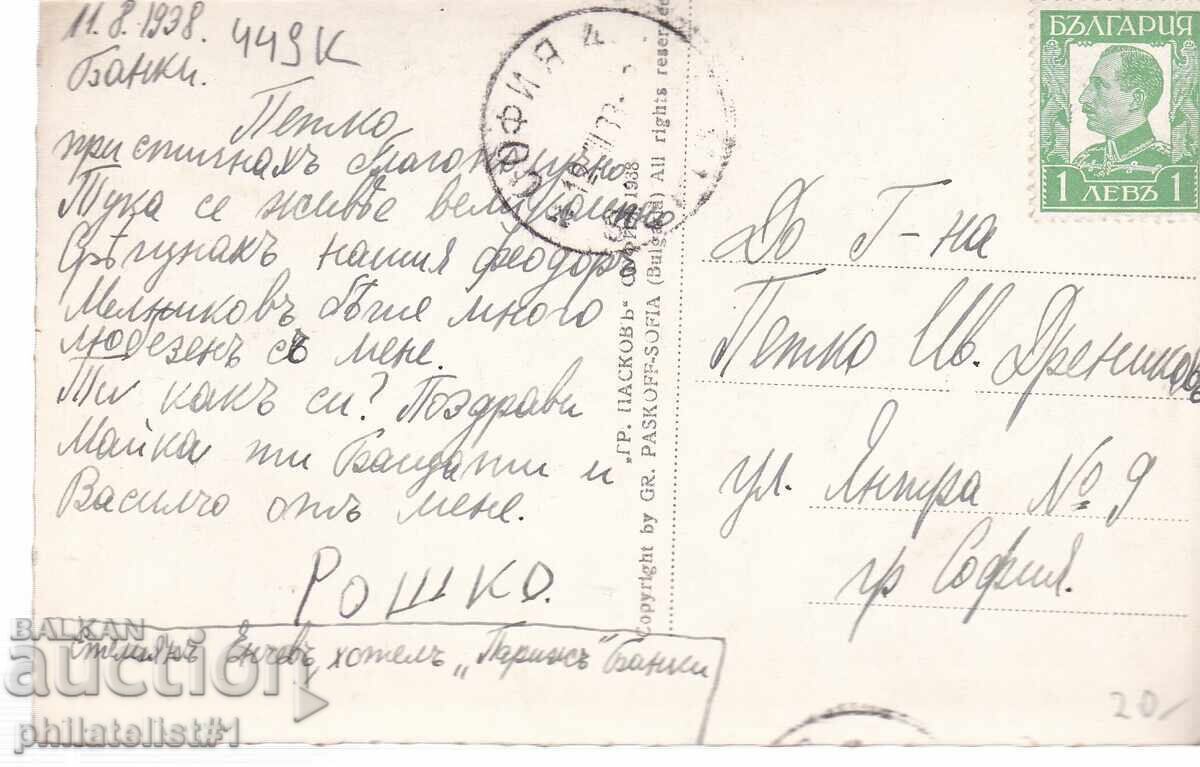 11.8.1938. 449К
Банки.
Петко,
пристигнахъ благополучно.
Тука се живѣе великолепно
Срѣщнахъ нашия Феодоръ
Мелниковъ бѣше много
любезенъ съ мене.
Ти какъ си? Поздрави
Майка ти Баща ти и
Василчо отъ мене.
РОШКО.
Стелиянъ Енчевъ, хотелъ „Парижъ“ Банки
СОФИЯ 4
„ГР. ПАСКОВЪ“ СОФИЯ 1938
Copyright by GR. PASKOFF-SOFIA (Bulgaria) All rights reserved
БЪЛГАРИЯ
1 ЛЕВЪ 1
До Г-на
Петко Ив. Дрениковъ
ул. Янтра № 9
гр София.
20.-
BALKAN
auction
philatelist#1